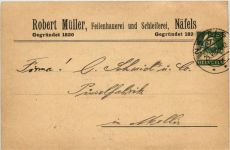 Robert Müller, Feilenhauerei und Schleiferei, Näfels
Gegründet 1820 Gegründet 182
Firma! C. Schmidt u. Co.
Pinselfabrik
in